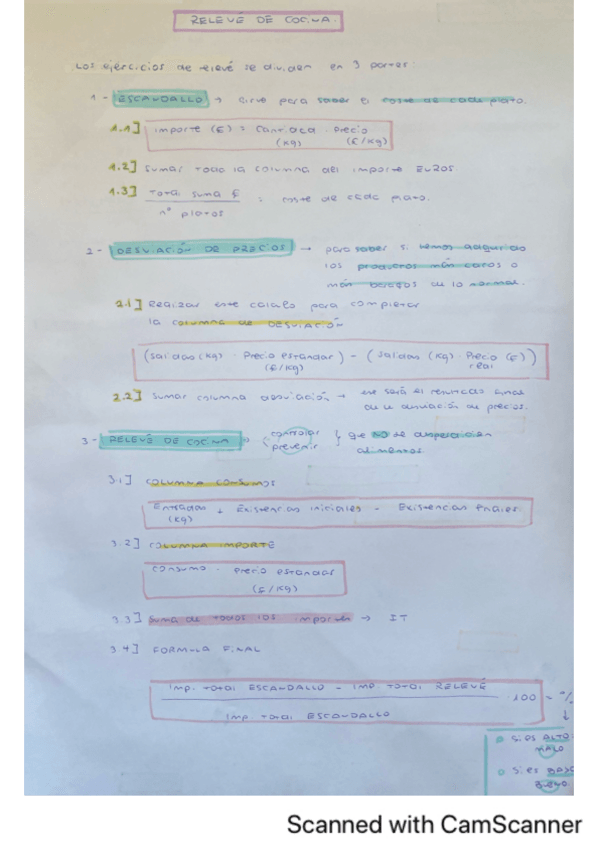 RELEVÉ DE COCINA.
Los ejercicios de relevé se dividen en 3 partes:
1 - ESCANDALLO → sirve para saber el coste de cada plato.
1.1] Importe (€) = Cantidad · Precio
(Kg) (€/Kg)
1.2] Sumar toda la columna del importe EUROS.
1.3] Total suma € = coste de cada plato.
nº platos
2 - DESVIACIÓN DE PRECIOS → para saber si hemos adquirido
los productos más caros o
más baratos de lo normal.
2.1] Realizar este cálculo para completar
la columna de DESVIACIÓN
(Salidas (Kg) · Precio estándar) - (Salidas (Kg) · Precio (€))
(€/Kg) real
2.2] Sumar columna desviación → ese será el resultado
de la desviación de precios.
3 - RELEVÉ DE COCINA → controlar que NO se desperdicien
prevenir alimentos
3.1] COLUMNA CONSUMOS
Entradas + Existencias iniciales - Existencias finales
(Kg)
3.2] COLUMNA IMPORTE
CONSUMO · Precio estándar
(€/Kg)
3.3] Suma de todos los importes → IT
3.4] FORMULA FINAL
IMP. Total ESCANDALLO - IMP. Total RELEVÉ · 100 = %
IMP. Total ESCANDALLO ↓
Si es ALTO
MALO
Si es BAJO
BUENO
Scanned with CamScanner